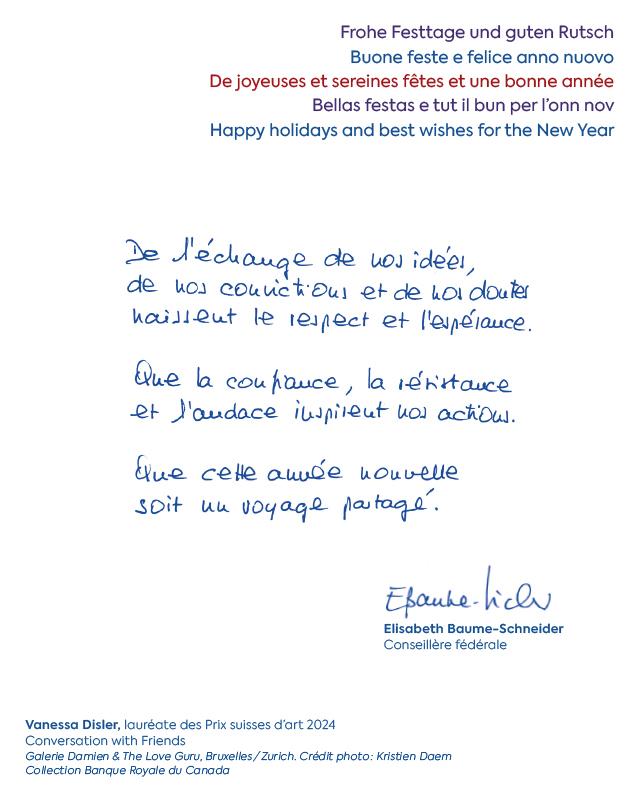 Frohe Festtage und guten Rutsch
Buone feste e felice anno nuovo
De joyeuses et sereines fêtes et une bonne année
Bellas festas e tut il bun per l'onn nov
Happy holidays and best wishes for the New Year
De l'échange de nos idées,
de nos convictions et de nos doutes
naissent le respect et l'espérance.
Que la confiance, la résistance
et l'audace inspirent nos actions.
Que cette année nouvelle
soit un voyage partagé.
EBaume-Schneider
Elisabeth Baume-Schneider
Conseillère fédérale
Vanessa Disler, lauréate des Prix suisses d'art 2024
Conversation with Friends
Galerie Damien & The Love Guru, Bruxelles / Zurich. Crédit photo: Kristien Daem
Collection Banque Royale du Canada